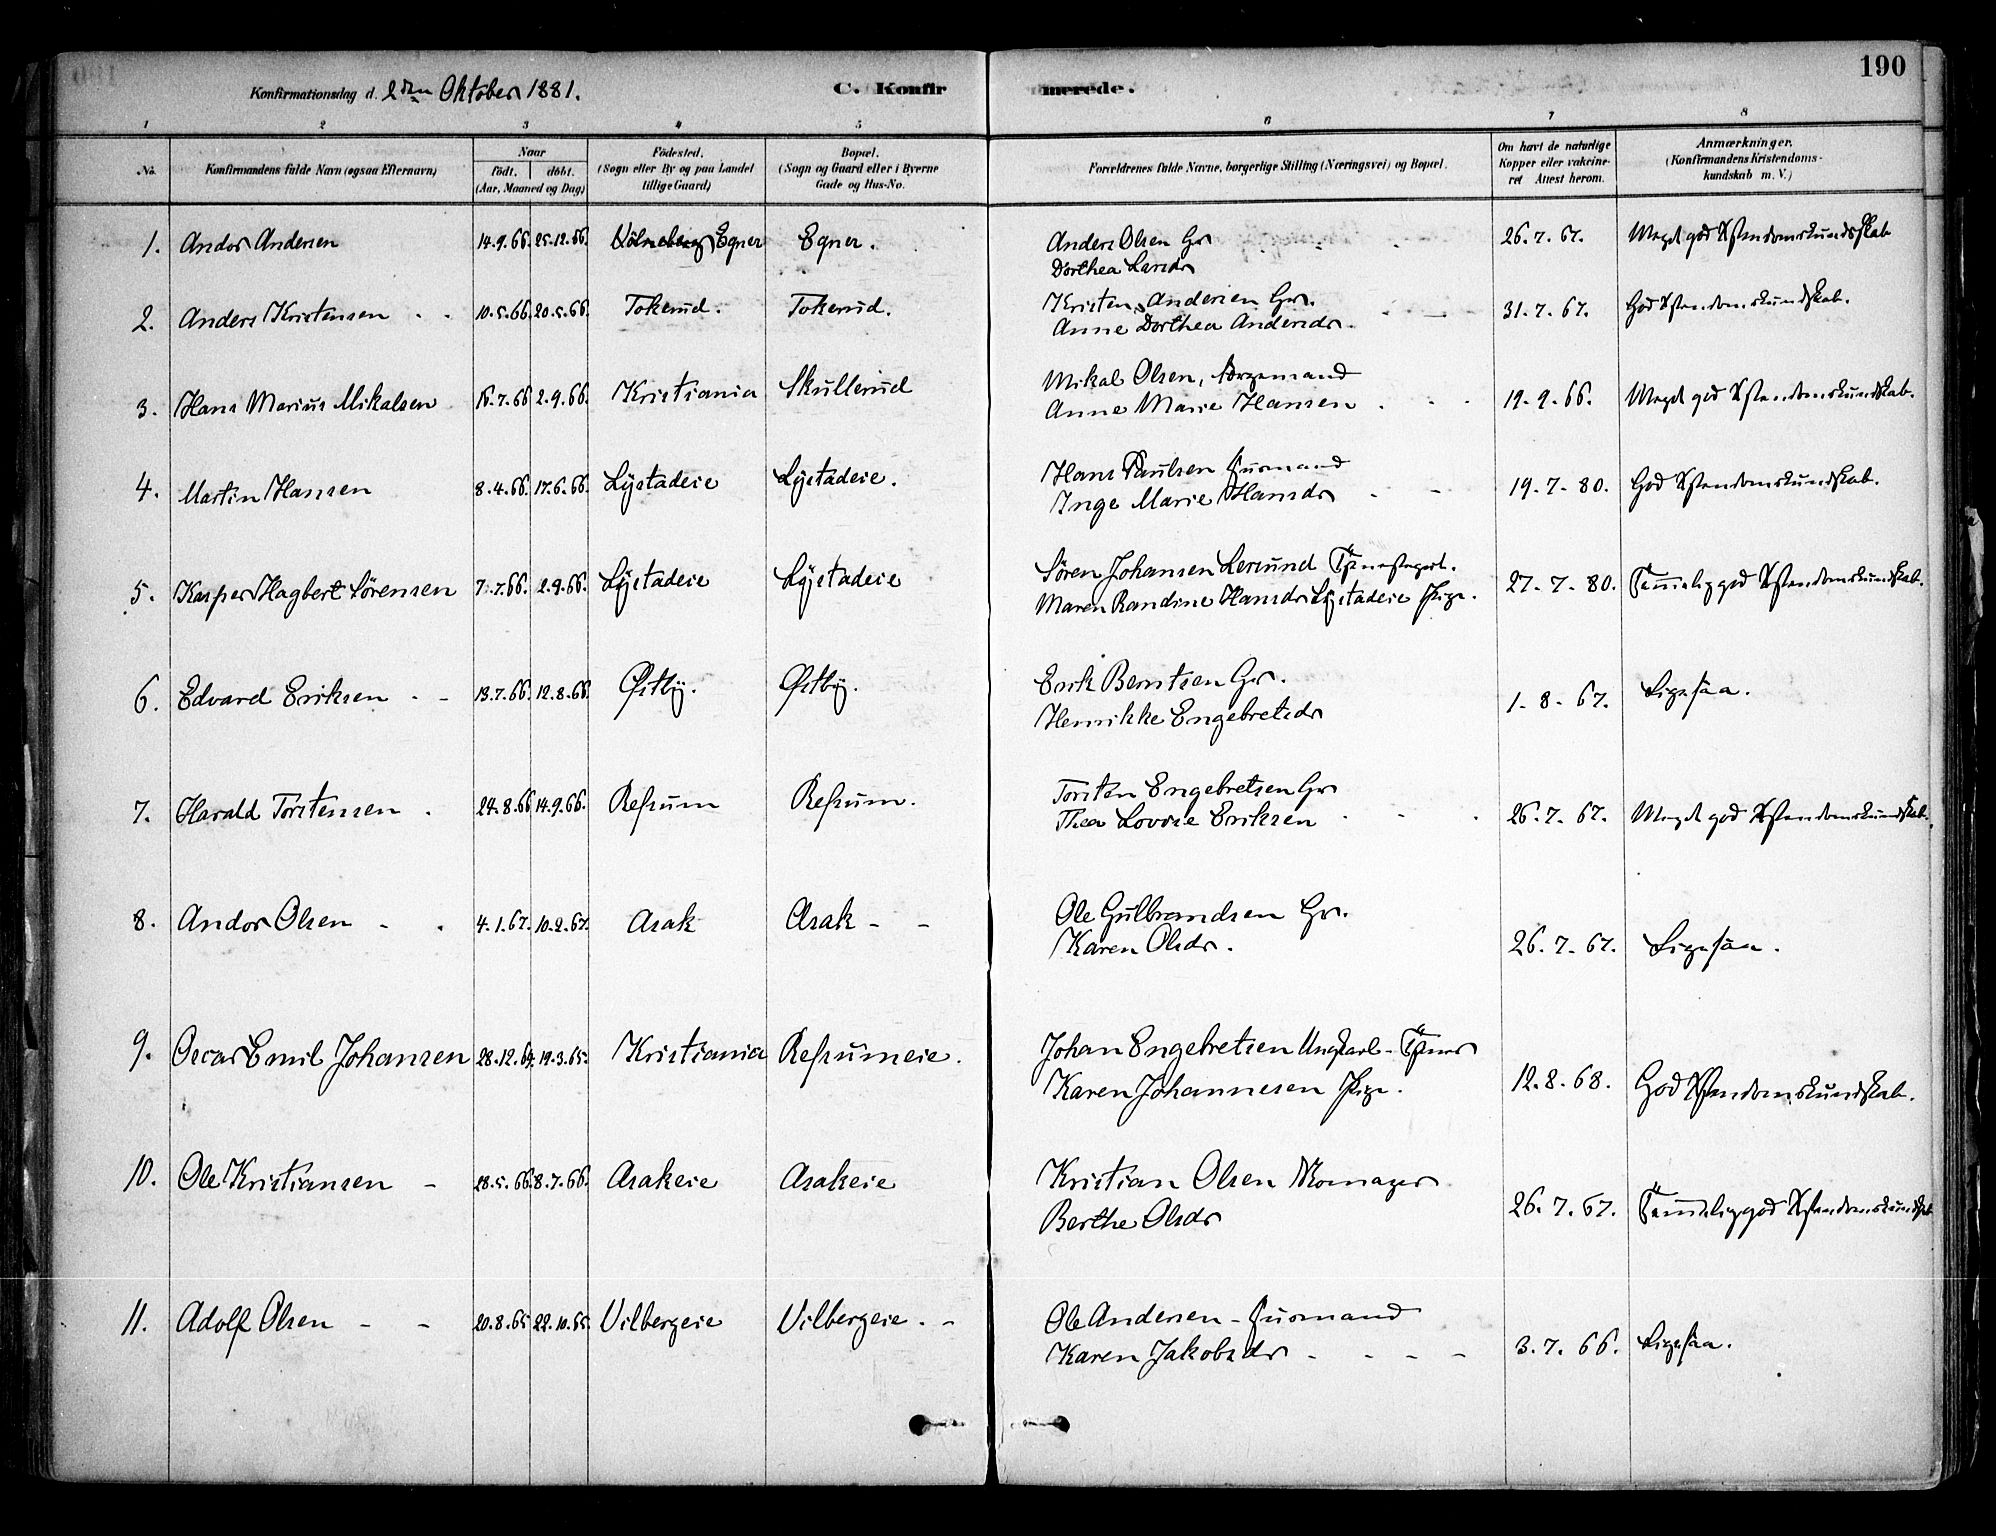 190
Konfirmationsdag d. 2den Oktober 1881. C. Konfirmerede.
1 2 3 4 5 6 7 8
No. Konfirmandens fulde Navn (ogsaa Efternavn) Naar født. døbt. (Aar, Maaned og Dag) Fødested. (Sogn eller By og paa Landet tillige Gaard) Bopæl. (Sogn og Gaard eller i Byerne Gade og Hus-No. Forældrenes fulde Navne, borgerlige Stilling (Næringsvei) og Bopæl. Om havt de naturlige Kopper eller vakcineret Attest herom. Anmærkninger. (Konfirmandens Kristendomskundskab m. V.)
1. Andor Andersen 14.9.66. 25.12.66. Egner Egner. Anders Olsen Gr 26.7.67. Meget god Xstendomskundskab
Dorthea Larsdr
2. Anders Kristensen 10.5.66. 20.5.66. Tokerud. Tokerud. Kristen Andersen Gr. 31.7.67. God Xstendomskundskab.
Anne Dorthea Andersdr.
3. Hans Marius Mikalsen 16.7.66 2.9.66. Kristiania Skullerud Mikal Olsen, 19.9.66. Meget god Xstendomskundskab.
Anne Marie Hansen
4. Martin Hansen 8.4.66. 17.6.66. Lystadeie Lystadeie. Hans Paulsen Husmand 19.7.80. God Xstendomskundskab.
Inge Marie Hansdr
5. Kasper Hagbert Sørensen 7.7.66. 2.9.66. Lystadeie Lystadeie Søren Johansen Lersund 27.7.80. Temmelig god Xstendomskundskab.
Maren Randine Hansdr Lystadeie Pige.
6. Edvard Eriksen 13.7.66. 12.8.66. Østby. Østby. Erik Berntsen Gr. 1.8.67. Ligesaa.
Henrikke Engebretsdr
7. Harald Torstensen 24.8.66 14.9.66. Refsum Refsum. Torsten Engebretsen Gr 26.7.67. Meget god Xstendomskundskab.
Thea Lovise Eriksen
8. Andor Olsen 4.1.67. 10.2.67. Asak Asak Ole Gulbrandsen Gr. 26.7.67. Ligesaa.
Karen Olsdr.
9. Oscar Emil Johansen 28.12.64. 19.3.65. Kristiania Refsumeie. Johan Engebretsen Ungkarl - Tjener 12.8.68. God Xstendomskundskab.
Karen Johannesen Pige.
10. Ole Kristiansen 28.5.66. 8.7.66. Asakeie Asakeie Kristian Olsen Skomager 26.7.67. Temmelig god Xstendomskundskab
Berthe Olsdr
11. Adolf Olsen 20.8.65 22.10.65. Vilbergeie Vilbergeie. Ole Andersen - Husmand 3.7.66. Ligesaa.
Karen Jakobsdr